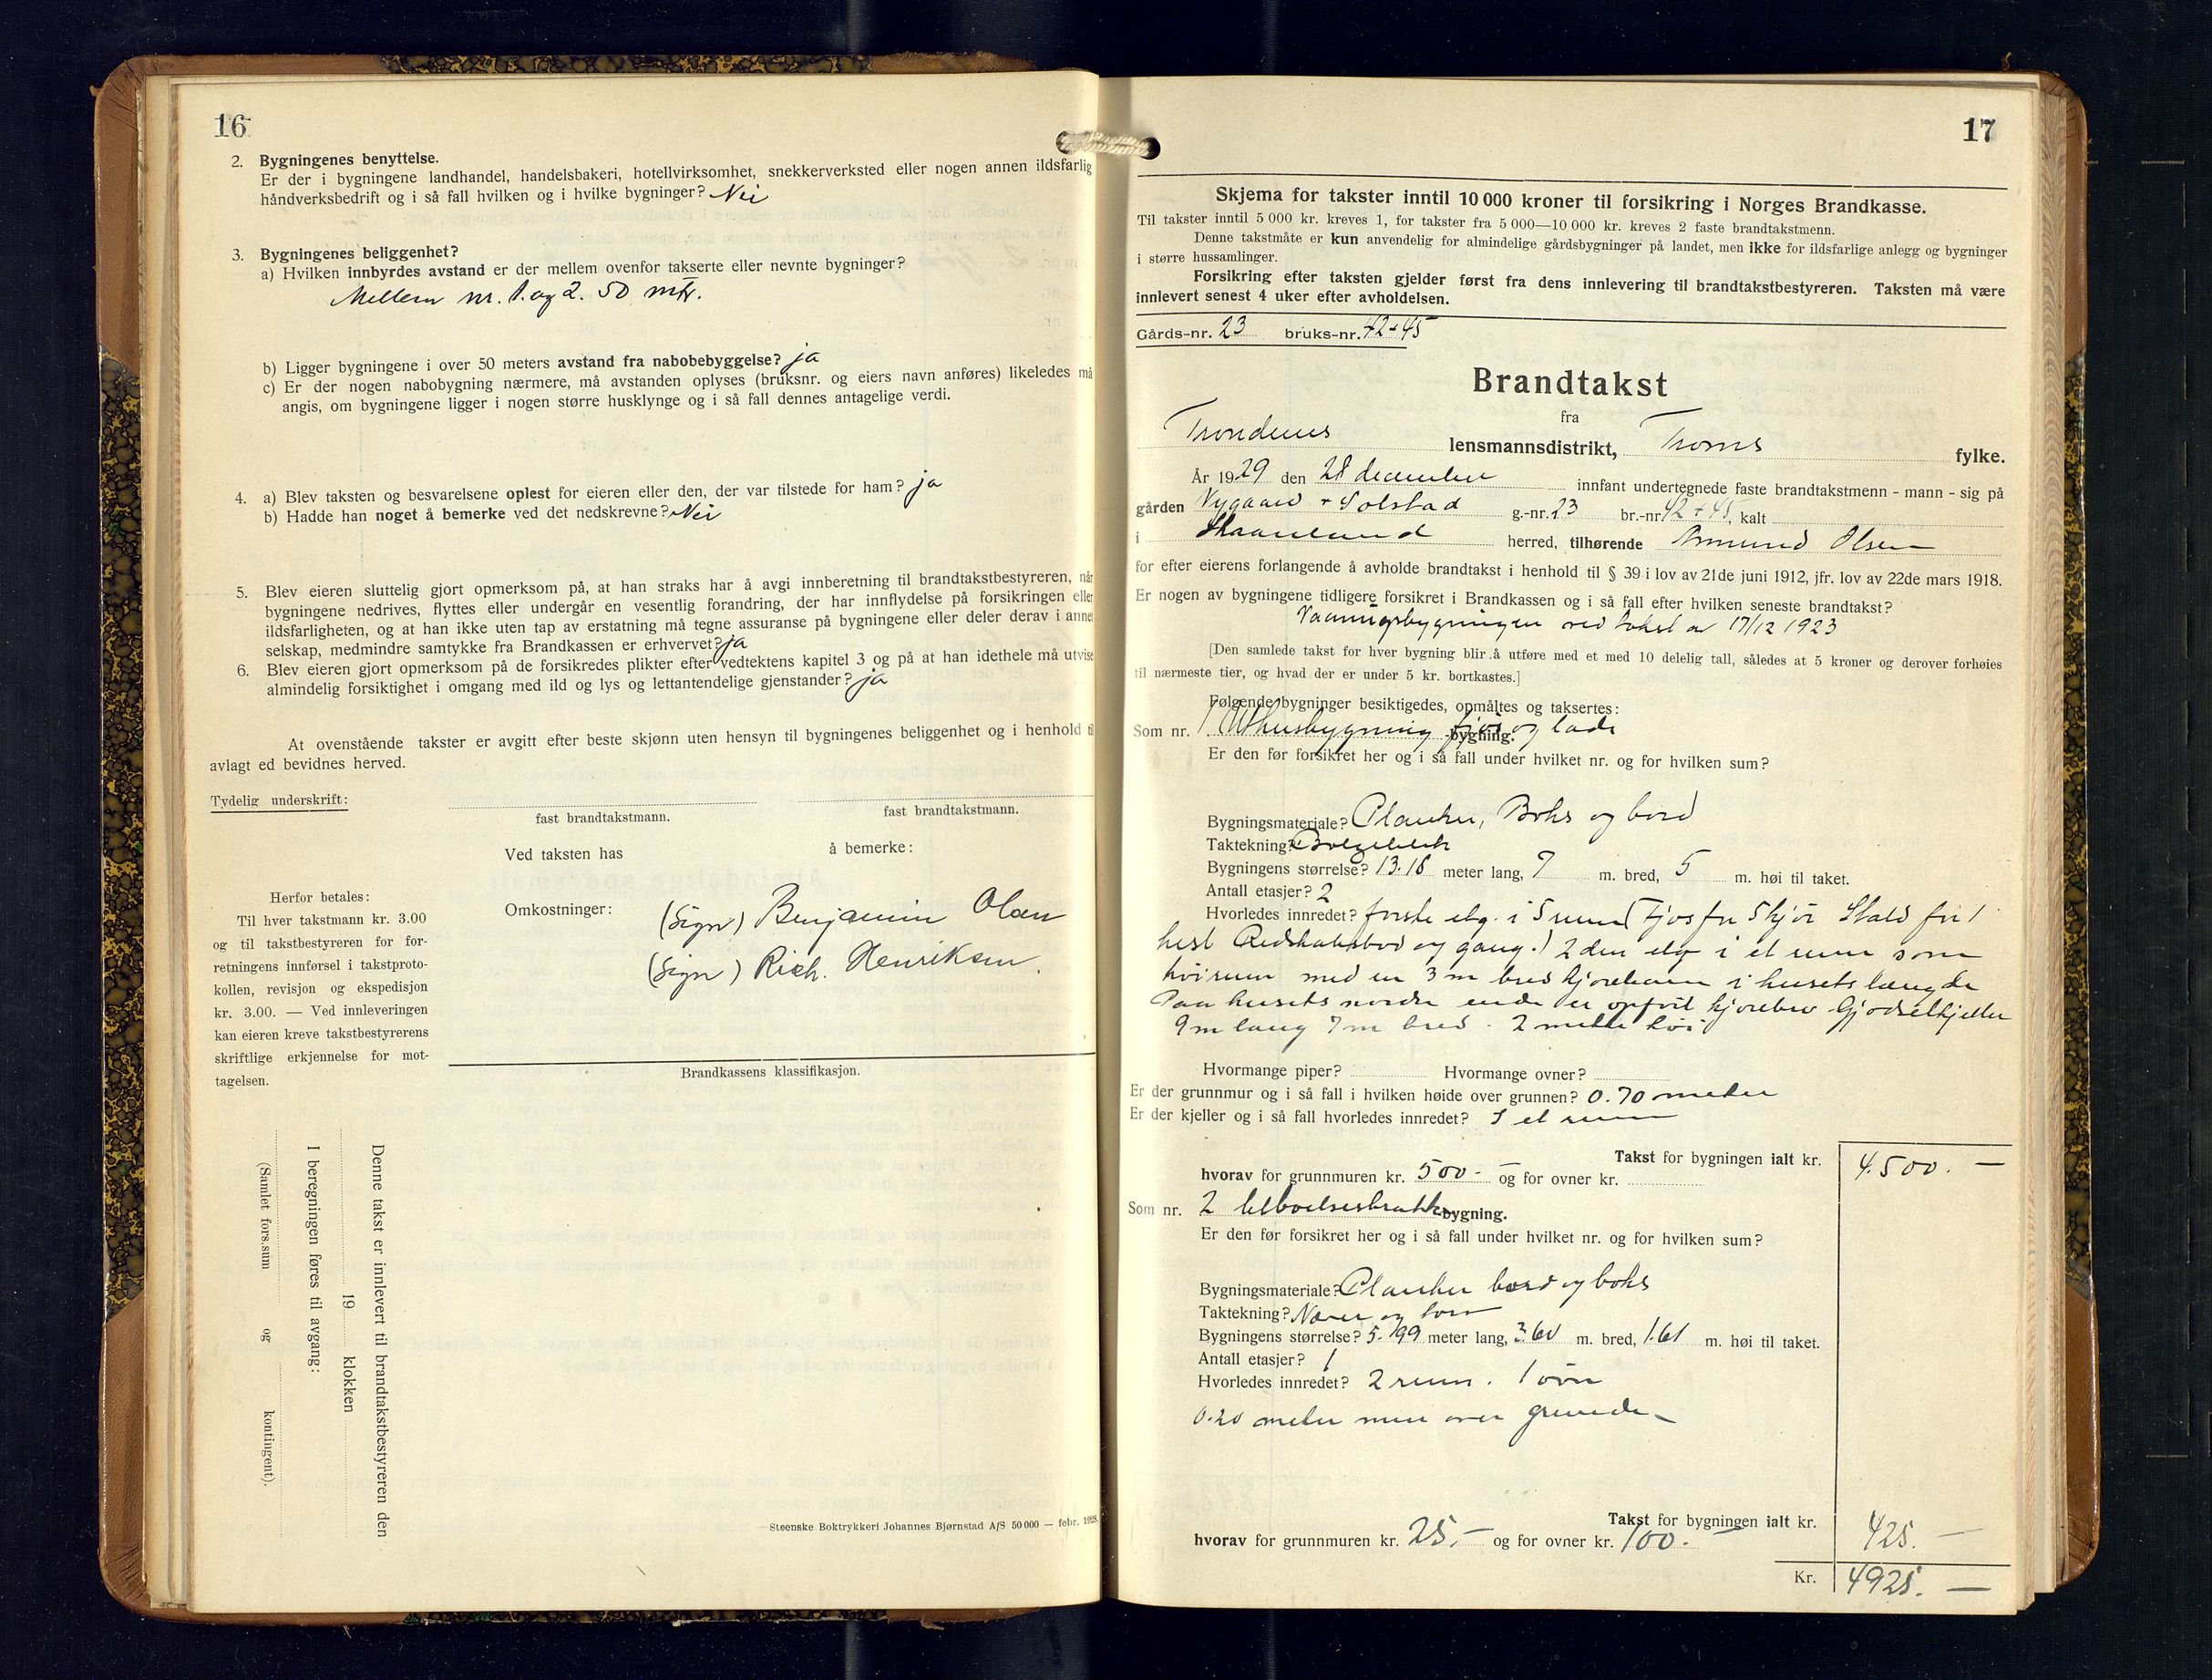 16
2. Bygningenes benyttelse.
Er der i bygningene landhandel, handelsbakeri, hotellvirksomhet, snekkerverksted eller nogen annen ildsfarlig
håndverksbedrift og i så fall hvilken og i hvilke bygninger? Nei
3. Bygningenes beliggenhet?
a) Hvilken innbyrdes avstand er der mellem ovenfor takserte eller nevnte bygninger?
Mellem nr. 1. og 2. 50 mtr.
b) Ligger bygningene i over 50 meters avstand fra nabobebyggelse? ja
c) Er der nogen nabobygning nærmere, må avstanden oplyses (bruksnr. og eiers navn anføres) likeledes må
angis, om bygningene ligger i nogen større husklynge og i så fall dennes antagelige verdi.
4. a) Blev taksten og besvarelsene oplest for eieren eller den, der var tilstede for ham? ja
b) Hadde han noget å bemerke ved det nedskrevne? Nei
5. Blev eieren sluttelig gjort opmerksom på, at han straks har å avgi innberetning til brandtakstbestyreren, når
bygningene nedrives, flyttes eller undergår en vesentlig forandring, der har innflydelse på forsikringen eller
ildsfarligheten, og at han ikke uten tap av erstatning må tegne assuranse på bygningene eller deler derav i anne
selskap, medmindre samtykke fra Brandkassen er erhvervet? ja
6. Blev eieren gjort opmerksom på de forsikredes plikter efter vedtektens kapitel 3 og på at han idethele må utvise
almindelig forsiktighet i omgang med ild og lys og lettantendelige gjenstander? ja
At ovenstående takster er avgitt efter beste skjønn uten hensyn til bygningenes beliggenhet og i henhold til
avlagt ed bevidnes herved.
Tydelig underskrift:
fast brandtakstmann. fast brandtakstmann.
Ved taksten has å bemerke:
Herfor betales:
Til hver takstmann kr. 3.00
og til takstbestyreren for for-
retningens innførsel i takstproto-
kollen, revisjon og ekspedisjon
kr. 3.00. — Ved innleveringen
kan eieren kreve takstbestyrerens
skriftlige erkjennelse for mot-
tagelsen.
Omkostninger:
(Sign) Benjamin Olsen
(Sign) Rich. Henriksen.
Brandkassens klassifikasjon.
Denne takst er innlevert til brandtakstbestyreren den
19 klokken
I beregningen føres til avgang:
(Samlet fors.sum og kontingent).
Steenske Boktrykkeri Johannes Bjørnstad A/S 50 000 — febr. 1928.
17
Skjema for takster inntil 10 000 kroner til forsikring i Norges Brandkasse.
Til takster inntil 5 000 kr. kreves 1, for takster fra 5 000—10 000 kr. kreves 2 faste brandtakstmenn.
Denne takstmåte er kun anvendelig for almindelige gårdsbygninger på landet, men ikke for ildsfarlige anlegg og bygninger
i større hussamlinger.
Forsikring efter taksten gjelder først fra dens innlevering til brandtakstbestyreren. Taksten må være
innlevert senest 4 uker efter avholdelsen.
Gårds-nr. 23 bruks-nr. 42 + 45
Brandtakst
fra
Trondenes lensmannsdistrikt, Troms fylke.
År 1929 den 28 december innfant undertegnede faste brandtakstmenn - mann - sig på
gården Nygaard + Solstad g.-nr. 23 br.-nr. 42 + 45, kalt
i Skaanland herred, tilhørende Amund Olsen
for efter eierens forlangende å avholde brandtakst i henhold til § 39 i lov av 21de juni 1912, jfr. lov av 22de mars 1918.
Er nogen av bygningene tidligere forsikret i Brandkassen og i så fall efter hvilken seneste brandtakst?
Vaaningsbygningen ved takst av 17/12 1923
[Den samlede takst for hver bygning blir å utføre med et med 10 delelig tall, således at 5 kroner og derover forhøies
til nærmeste tier, og hvad der er under 5 kr. bortkastes.]
Følgende bygninger besiktigedes, opmåltes og taksertes:
Som nr. 1 Uthusbygning fjøs og lade bygning.
Er den før forsikret her og i så fall under hvilket nr. og for hvilken sum?
Bygningsmateriale? Planker, Boks og bord
Taktekning? Bølgeblik
Bygningens størrelse? 13.18 meter lang, 7 m. bred, 5 m. høi til taket.
Antall etasjer? 2
Hvorledes innredet? første etg. i 5 rum (Fjøs for 5 kjør Stald for 1
hest Redskabsbod og gang.) 2den etg i et rum som
høirum med en 3 m bred kjørebane i husets længde
Paa husets nordre ende er opført kjørebro Gjødselkjeller
9 m lang 7 m bred. 2 meter høi
Hvormange piper? Hvormange ovner?
Er der grunnmur og i så fall i hvilken høide over grunnen? 0.70 meter
Er der kjeller og i så fall hvorledes innredet? I et rum
Takst for bygningen ialt kr. 4.500. —
hvorav for grunnmuren kr. 500.- og for ovner kr.
Som nr. 2 bygning.
Er den før forsikret her og i så fall under hvilket nr. og for hvilken sum?
Bygningsmateriale? Planker bord og boks
Taktekning? Næver og torv
Bygningens størrelse? 5.99 meter lang, 3.60 m. bred, 1.61 m. høi til taket.
Antall etasjer? 1
Hvorledes innredet? 2 rum. 1 ovn
0.20 meter mur over grunden
Takst for bygningen ialt kr. 425. —
hvorav for grunnmuren kr. 25.— og for ovner kr. 100.—
Kr. 4925. —